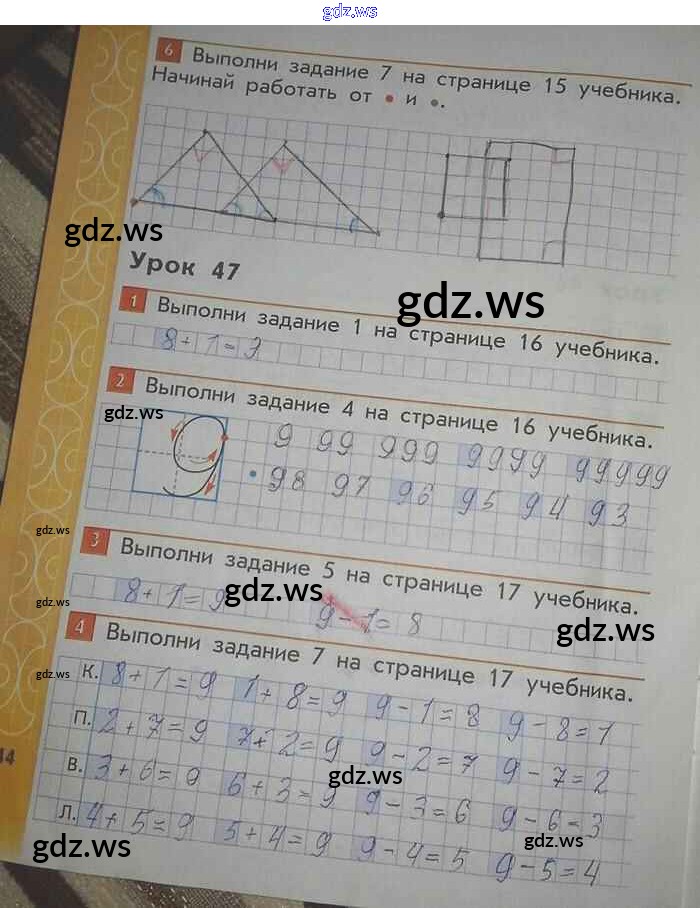 gdz.ws
6 Выполни задание 7 на странице 15 учебника.
Начинай работать от • и •.
gdz.ws
Урок 47
gdz.ws
1 Выполни задание 1 на странице 16 учебника.
8 + 1 = 9
2 Выполни задание 4 на странице 16 учебника.
gdz.ws
9 99 999 9999 99999
98 97 96 95 94 93
gdz.ws
3 Выполни задание 5 на странице 17 учебника.
gdz.ws
gdz.ws
8 + 1 = 9 9 - 1 = 8
gdz.ws
4 Выполни задание 7 на странице 17 учебника.
gdz.ws
К. 8 + 1 = 9 1 + 8 = 9 9 - 1 = 8 9 - 8 = 1
П. 2 + 7 = 9 7 + 2 = 9 9 - 2 = 7 9 - 7 = 2
gdz.ws
В. 3 + 6 = 9 6 + 3 = 9 9 - 3 = 6 9 - 6 = 3
Л. 4 + 5 = 9 5 + 4 = 9 9 - 4 = 5 9 - 5 = 4
14
gdz.ws
gdz.ws